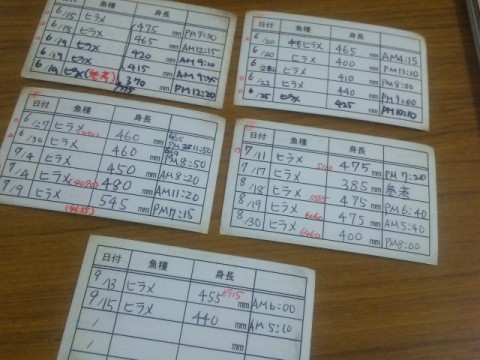 6/15 ヒラメ 475 mm PM9:30
6/15 ヒラメ 465 mm AM12:15
6/19 ヒラメ 420 mm AM9:10
6/19 ヒラメ 415 mm AM9:35
6/19 ヒラメ(参考) 370 mm PM12:20
日付 魚種 身長
6/20 ヒラメ 465 mm AM4:15
6/20 ヒラメ 400 mm
ヒラメ 410 mm PM8:00
ヒラメ 440 mm PM9:00
6/25 ヒラメ 425 mm PM10:10
日付 魚種 身長
6/27 ヒラメ 460 mm
6/30 ヒラメ 460 mm PM8:50
7/4 ヒラメ 450 mm AM8:20
7/4 ヒラメ 480 mm AM11:20
7/9 ヒラメ 545 mm PM7:15
日付 魚種 身長
7/11 ヒラメ 475 mm PM7:20
7/17 ヒラメ 385 mm 参考
8/18 ヒラメ 475 mm PM6:40
8/19 ヒラメ 475 mm AM5:40
8/30 ヒラメ 400 mm PM8:00
日付 魚種 身長
9/13 ヒラメ 455 mm AM6:00
9/15 ヒラメ 440 mm AM5:10
mm